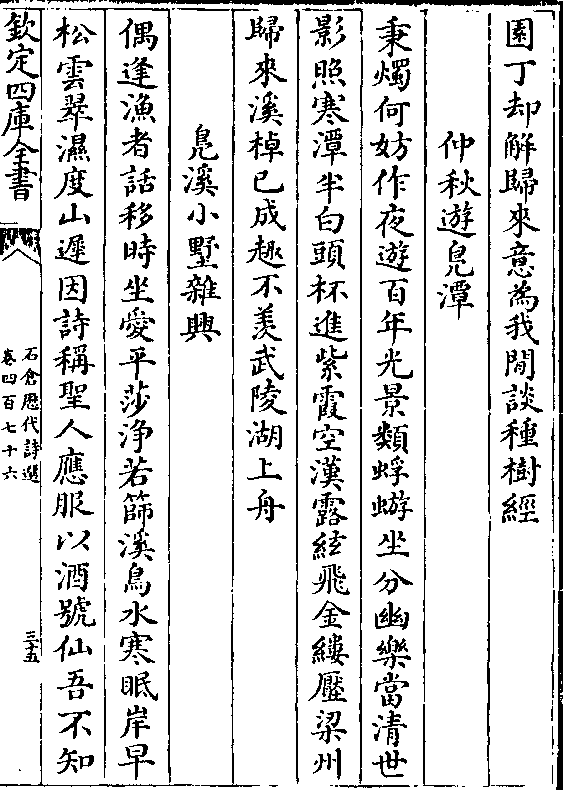 園丁却解歸來意為我閒談種樹經
仲秋遊皃潭
秉燭何妨作夜遊百年光景類蜉蝣坐分幽樂當清世
影照寒潭半白頭杯進紫霞空漢露絃飛金縷壓梁州
歸來溪棹已成趣不羡武陵湖上舟
皃溪小墅雜興
偶逢漁者話移時坐愛平莎浄若篩溪鳥水寒眠岸早
松雲翠濕度山遲因詩稱聖人應服以酒號仙吾不知
欽定四庫全書
石倉歴代詩選
卷四百七十六
三十五